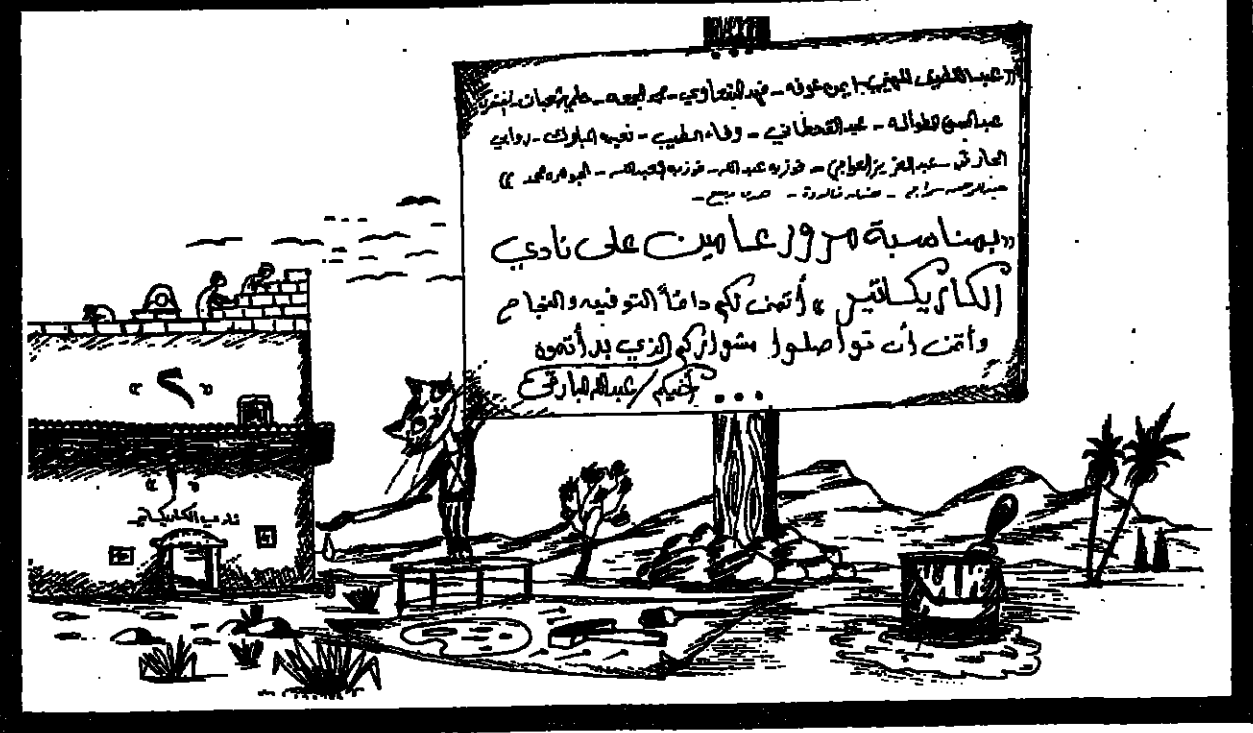 «عبداللطيف المهيني - ايمن عوفه - فهد البقعاوي - محمد الجمعه - علي شعبان
عبدالمحسن الطوالة - عبد القحطاني - وفاء الطيب - نعيمه المبارك - روابي
الحازمي - عبدالعزيز العواجي - فوزيه عبدالله - فوزيه العبدالله - الجوهره محمد»
عبدالرحمن سراج - هشام
«بمناسبة مرور عامين على نادي
الكاريكاتير» أتمنى لكم دائماً التوفيق والنجاح
وأتمنى أن تواصلوا مشواركم الذي بدأتموه
أخيكم / عبدالله البارقي ...
«٢»
«١»
نادي الكاريكاتير